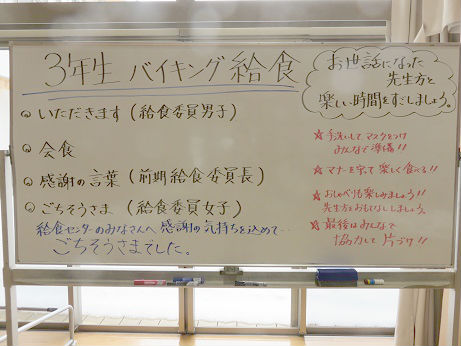 3年生 バイキング給食
お世話になった
先生方と
楽しい時間をすごしましょう。
◎ いただきます (給食委員男子)
◎ 会食
◎ 感謝の言葉 (前期給食委員長)
◎ ごちそうさま (給食委員女子)
給食センターのみなさんへ 感謝の気持ちを込めて…
ごちそうさまでした。
★ 手洗いしてマスクをつけ
みんなで準備!!
★ マナーを守って楽しく食べる!!
★ おしゃべりも楽しみましょう!!
先生方をおもてなししましょう。
★ 最後はみんなで
協力して片づけ!!